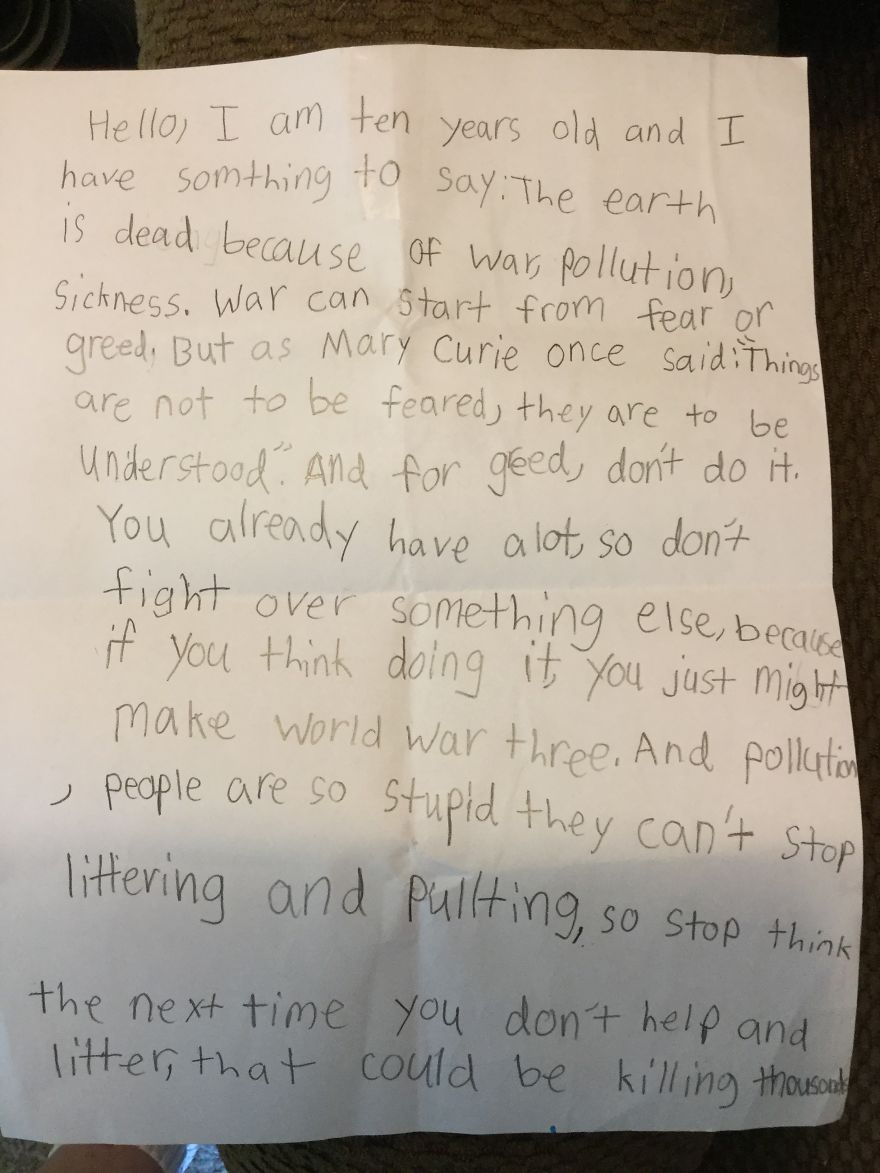 Hello, I am ten years old and I
have somthing to say: The earth
is dead because of war, pollution,
Sickness. War can start from fear or
greed. But as Mary Curie once said: "Things
are not to be feared, they are to be
understood". And for geed, don't do it.
You already have alot, so don't
fight over something else, because
if you think doing it, you just might
make world war three. And pollution
, people are so stupid they can't stop
littering and pullting, so stop think
the next time you don't help and
litter, that could be killing thousands